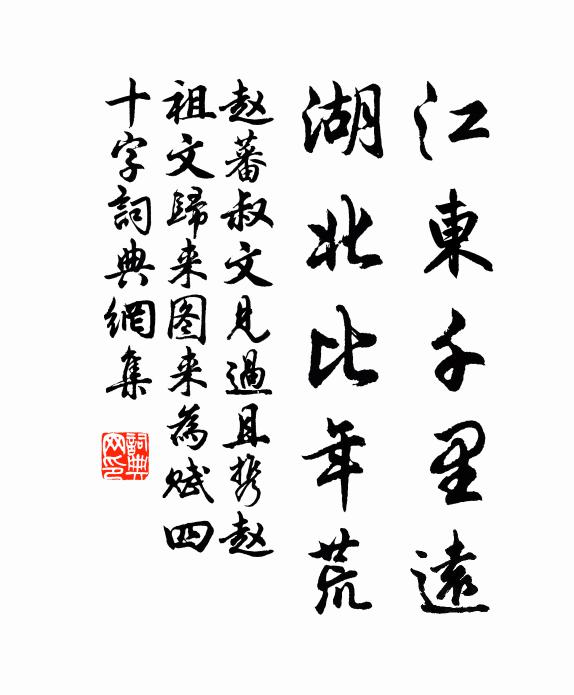 江東千里遠
湖北比年荒
赵蕃叔文見過且携赵
祖文歸来图来為赋四
十字詞典網集
詞典
网印